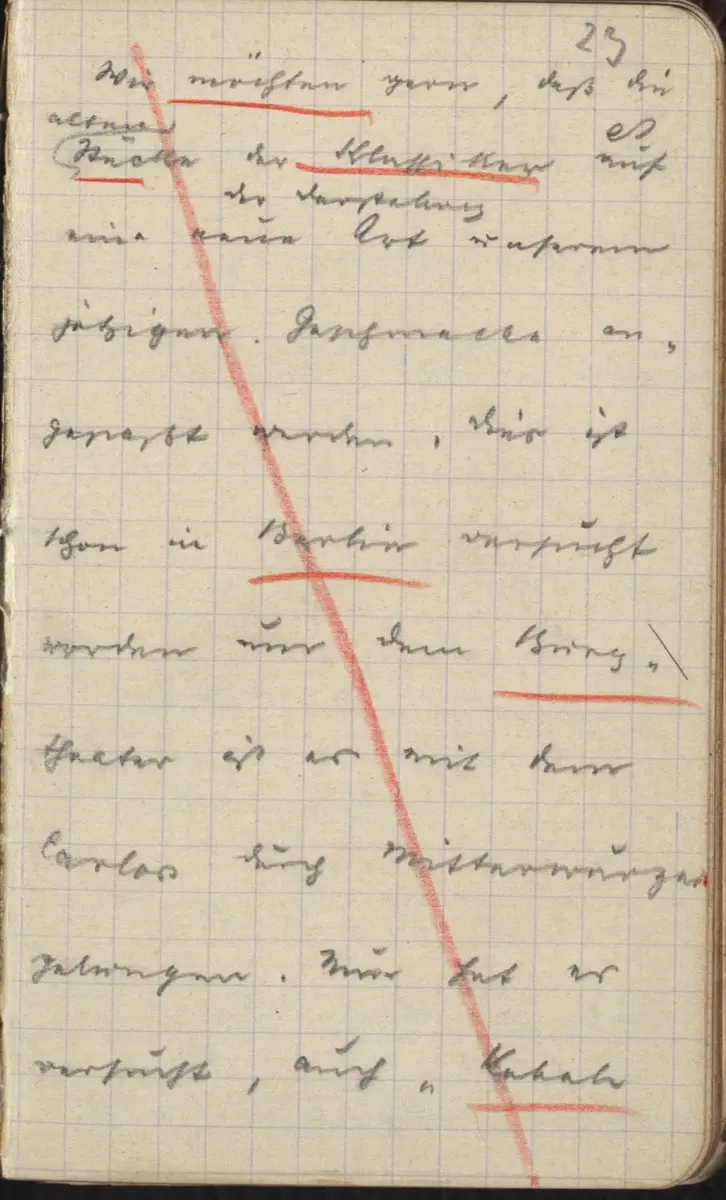 23
Wir möchten gern, daß die
alten
Stücke der Klassiker auf
der Darstellung
eine neue Art unserem
jetzigen Geschmacke an„
gepaßt werden, dies ist
schon in Berlin versucht
worden nur dem Burg„
theater ist es mit dem
Carlos durch Mitterwurzer
gelungen. Nun hat er
versucht, auch „Kabale